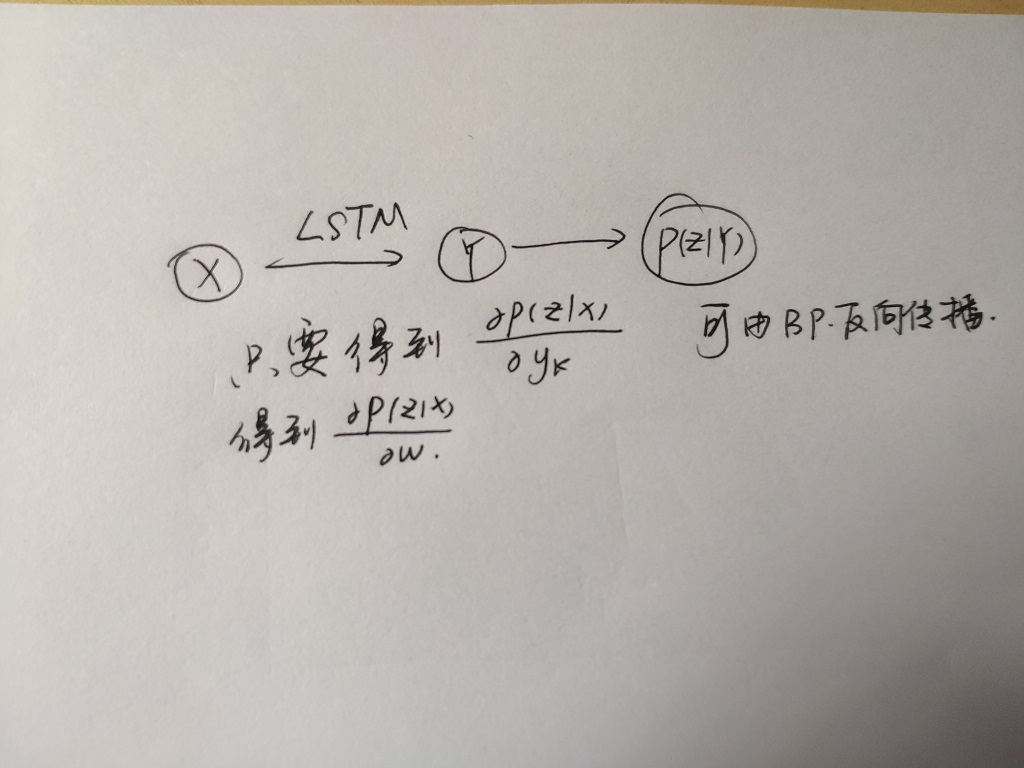 LSTM
X Y P(Z|Y)
只要得到 ∂P(Z|X)/∂yk 可由BP.反向传播.
得到 ∂P(Z|X)/∂w.